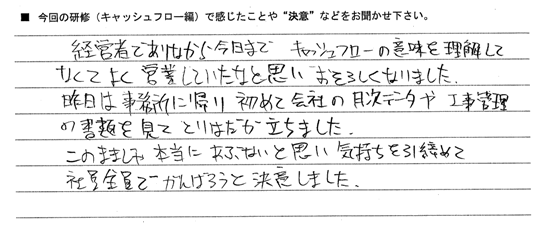 ■ 今回の研修（キャッシュフロー編）で感じたことや“決意”などをお聞かせ下さい。
経営者でありながら今日まで キャッシュフローの意味を理解して
なくてよく営業していたなと思い おそろしくなりました．
昨日は事務所に帰り 初めて会社の月次データや 工事管理
の書類を見て とりはだが立ちました．
このままじゃ本当にあぶないと思い 気持ちを引締めて
社員全員でがんばろうと決意しました．